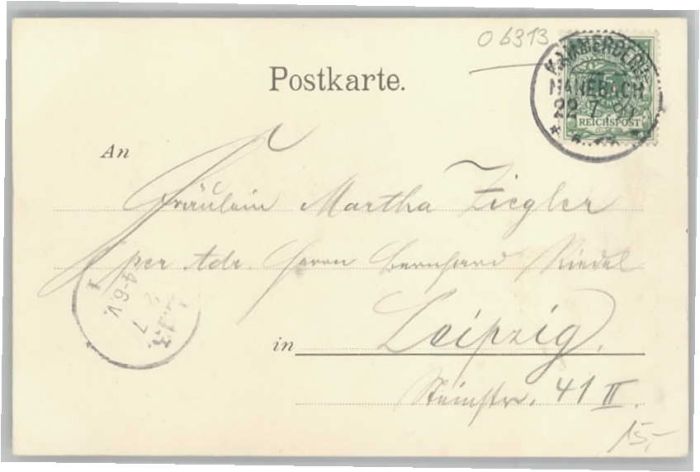 O 6313
Postkarte.
KAMMERBERG-
MANEBACH
22 7
5
REICHSPOST
An
Fräulein Martha Ziegler
per Adr. Herrn Bernhard Riedel
in Leipzig.
Steinstr. 41 II.
L. 13.
7
4-6 V.
15,-